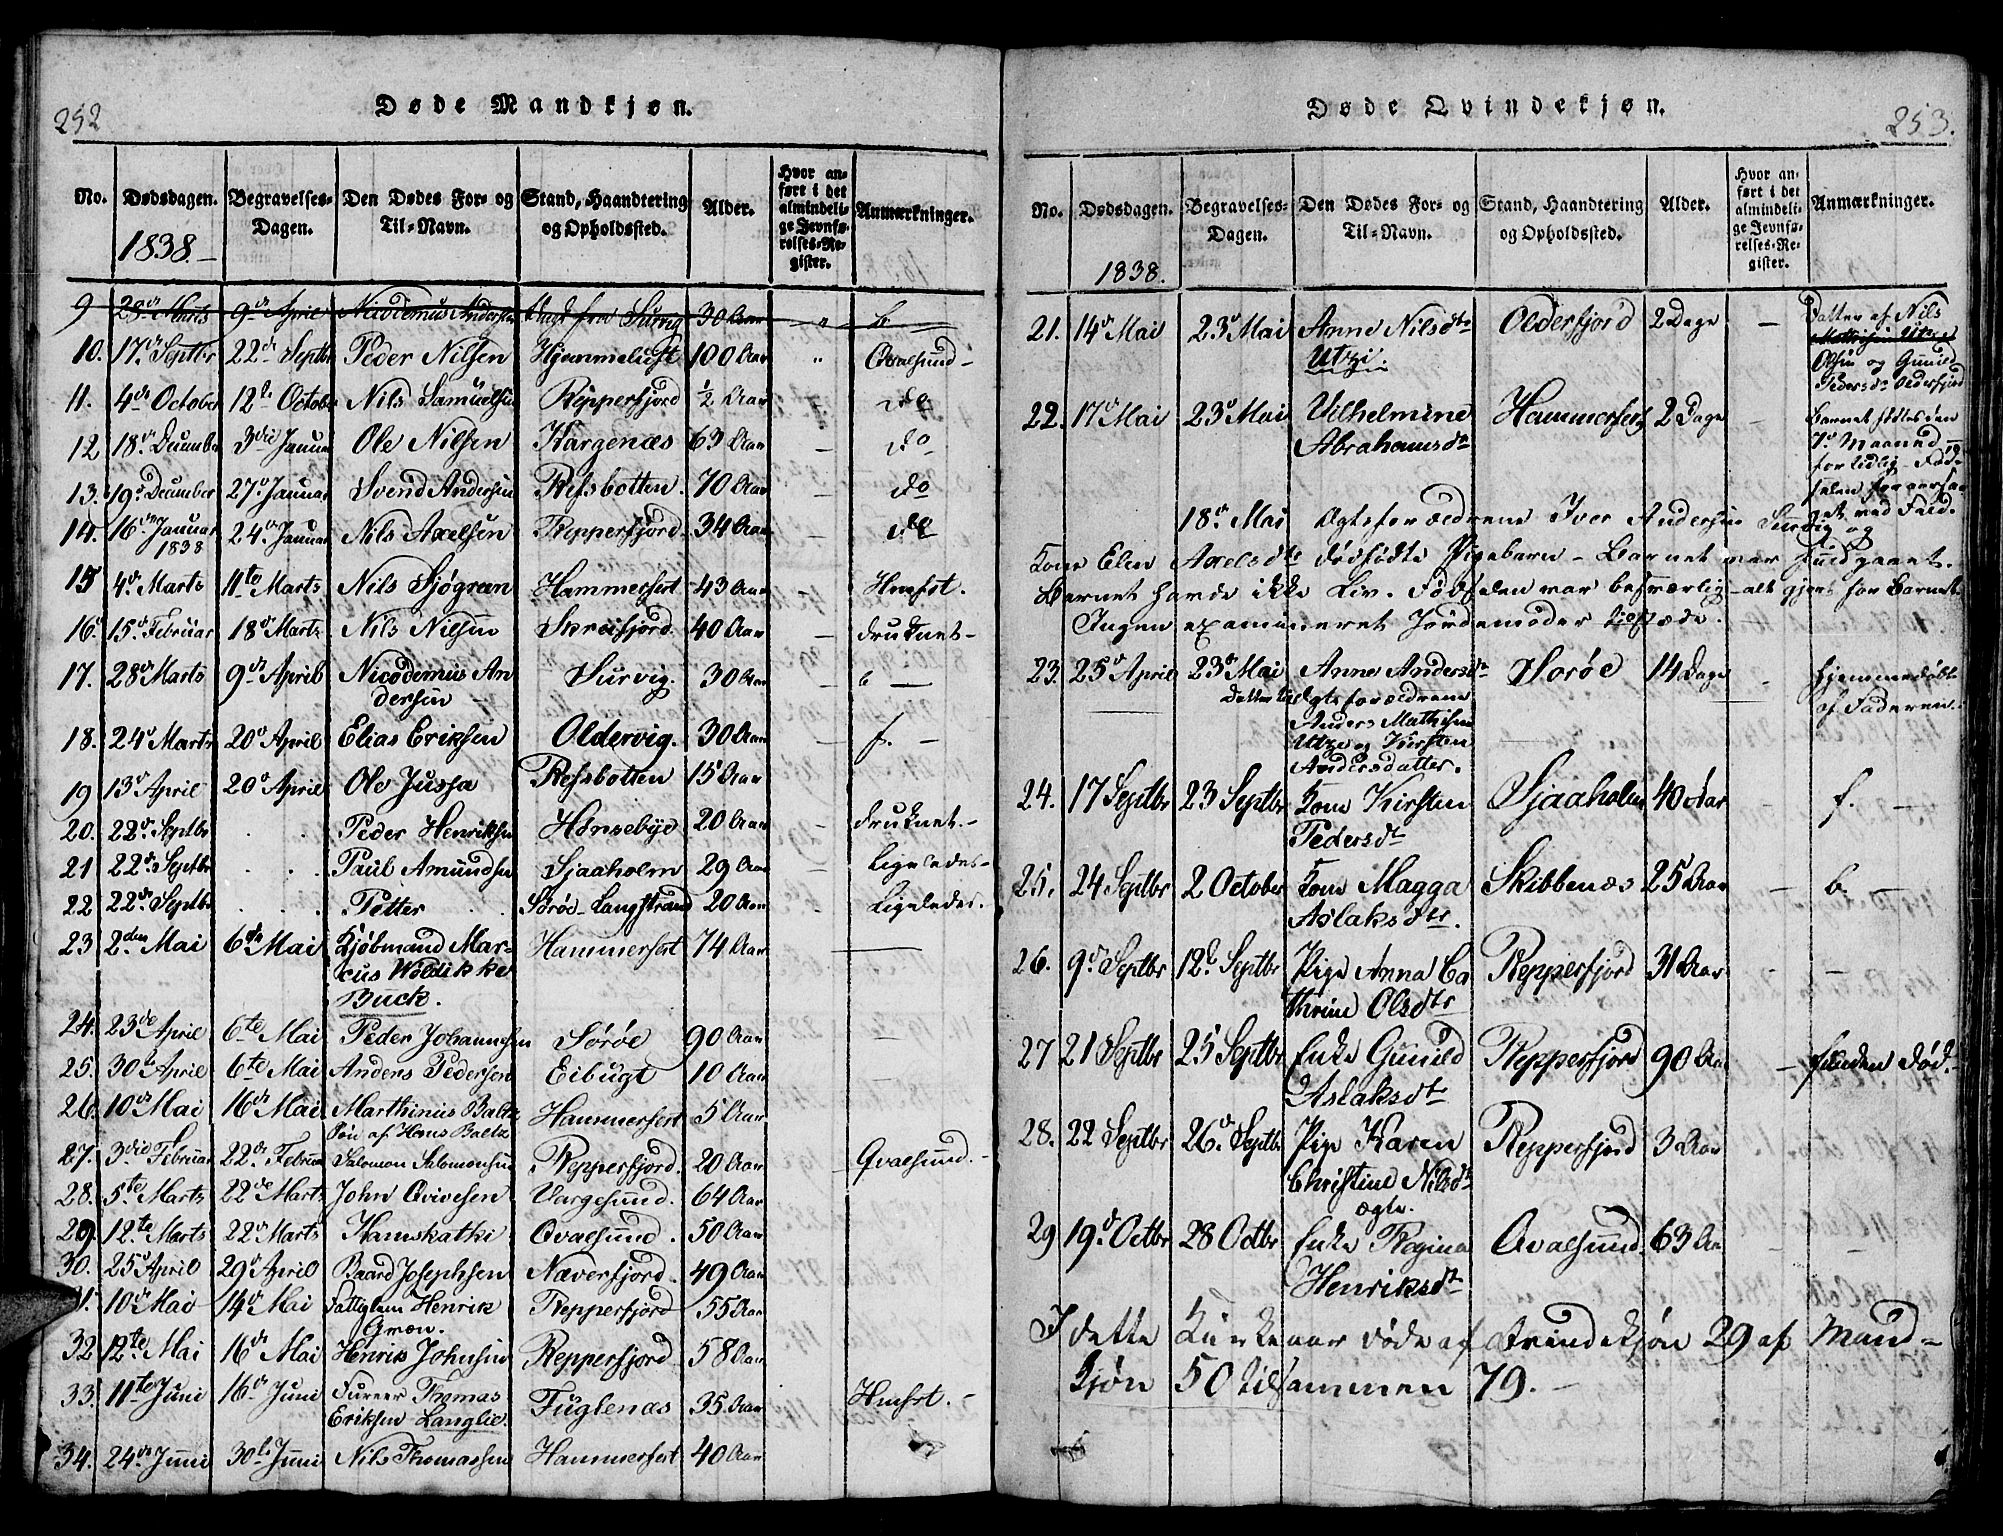 252
Døde Mandkjøn.
No. Dødsdagen. Begravelses-Dagen. Den Dødes For- og Til-Navn. Stand, Haandtering og Opholdssted. Alder. Hvor anført i det almindelige Jevnførelses-Register. Anmærkninger.
1838.-
9 28de Marts 9de April Nicodemus Andersen fra Survig 30 Aar " b
10. 17de Septbr 22de Septbr Peder Nilsen Hjemmeluft 100 Aar " Qvalsund-
11. 4de October 12te October Nils Samuelsen Repperfjord ½ Aar - do
12 18de December 3die Januar Ole Nilsen Kargenæs 63 Aar - do
13. 19de December 27de Januar Svend Andersen Refsbotten. 70 Aar - do
14. 16de Januar 24de Januar Nils Axelsen Repperfjord. 34 Aar - do
1838
15 4de Marts 11te Marts Nils Sjøgreen Hammerfest 43 Aar - Hmfst.
16. 15de Februar 18de Marts Nils Nilsen 40 Aar - druknet-
17. 28de Marts 9de April Nicodemus An Survig. 30 Aar - b -
dersen
18. 24de Marts 20de April Elias Eriksen Oldervig. 30 Aar - f. -
19 13de April 20de April Ole Jussa Refsbotten 15 Aar -
20. 22de Septbr . . Peder Henriksen Hønsebye 20 Aar - druknet.-
21 22de Septbr . . Paul Amundsen Sjaaholm 29 Aar - Ligeledes-
22 22de Septbr . . Petter . . Sørøe-Langstrand 20 Aar - Ligeledes.
23 2den Mai 6te Mai Kjøbmand Mar- Hammerfest 74 Aar - -
cus Wöldikke
Buck.
24. 23de April 6te Mai Peder Johannesen Sørøe 90 Aar
25. 30te April 6te Mai Anders Pedersen Eibugt 10 Aar
26. 10de Mai 16de Mai Marthinus Baltz Hammerfest 5 Aar
Søn af Hans Baltz
27. 3die Februar 22de Februar Salomon Salomonsen Repperfjord. 20 Aar Qvalsund.-
28. 5te Marts 22de Marts John Qvivesen Vargesund. 64 Aar
29. 12te Marts 22de Marts Hanskatki Qvalsund. 50 Aar
30. 25de April 29de April Baard Josephsen Næverfjord. 49 Aar
31. 10de Mai 14de Mai Fattiglem Henrik Repperfjord 55 Aar
Grøn.
32 12te Mai 16de Mai Henrik Johnsen Repperfjord 58 Aar
33. 11te Juni 16de Juni Thomas Fuglenæs 35 Aar Hmfst. -
Eriksen Langlie.
34. 24de Juni 30te Juni Nils Thomassen Hammerfest 40 Aar
253.
Døde Qvindekjøn.
No. Dødsdagen. Begravelses-Dagen. Den Dødes For- og Til-Navn. Stand, Haandtering og Opholdssted. Alder. Hvor anført i det almindelige Jevnførelses-Register. Anmærkninger.
1838.
21. 14de Mai 23de Mai Anne Nilsdtr Olderfjord 2 Dage - Datter af Nils
Utzi. Mathisen Utzi
Olsen og Gunild
Pedersdtr Olderfjord
22. 17de Mai 23de Mai Vilhelmine Hammerfest 2 Dage - Barnet fødtes den
Abrahamsdtr 7de Maaned -
for tidlig. Fød-
selen foraarsa-
get ved Fald.
18de Mai Ægteforældrene Iver Andersen Survig og
Kone Elen Axelsdtr dødfødte Pigebarn - Barnet var fuldgaaet.
Barnet havde ikke Liv. Fødselen var besværlig - alt gjort for Barnet
Ingen examineret Jordemoder tilstæde.
23. 25de April 23de Mai Anne Andersdtr Sorøe 14 Dage - Hjemmedøbt
Datter til Ægteforældrene af Faderen.
Anders Mathisen
Utze og Kirsten
Andersdatter.
24. 17 Septbr 23 Septbr Kone Kirsten Sjaaholm 40 Aar - f. -
Pedersdtr
25. 24 Septbr 2 October Kone Magga Skibbenæs 25 Aar - b. -
Aslaksdtr.
26. 9de Septbr 12te Septbr Pige Anna Ca Repperfjord 31 Aar - -
thrine Olsdtr
27 21 Septbr 25 Septbr Enke Gunild Repperfjord 90 Aar - funden død.
Aslaksdtr
28. 22 Septbr 26de Septbr Pige Karen Repperfjord 3 Aar
Christine Nilsdtr
ægte.
29 19de Octbr 28 Octbr Enke Regina Qvalsund. 63 Aar - -
Henriksdtr
I dette Kirkeaar døde af Qvindekjøn 29 af Mand-
kjøn 50 tilsammen 79.-